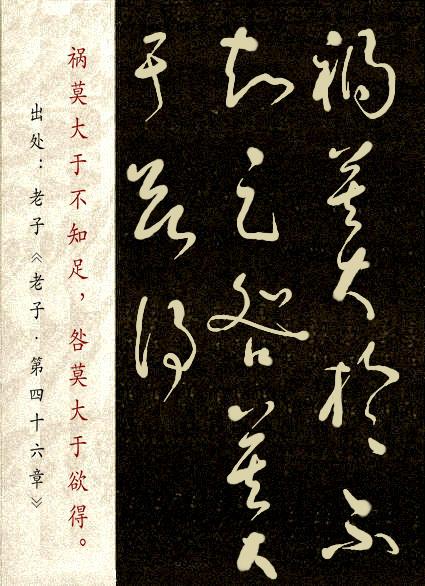 禍莫大於不
知足咎莫大
于欲得
祸莫大于不知足，咎莫大于欲得。
出处：老子《老子·第四十六章》